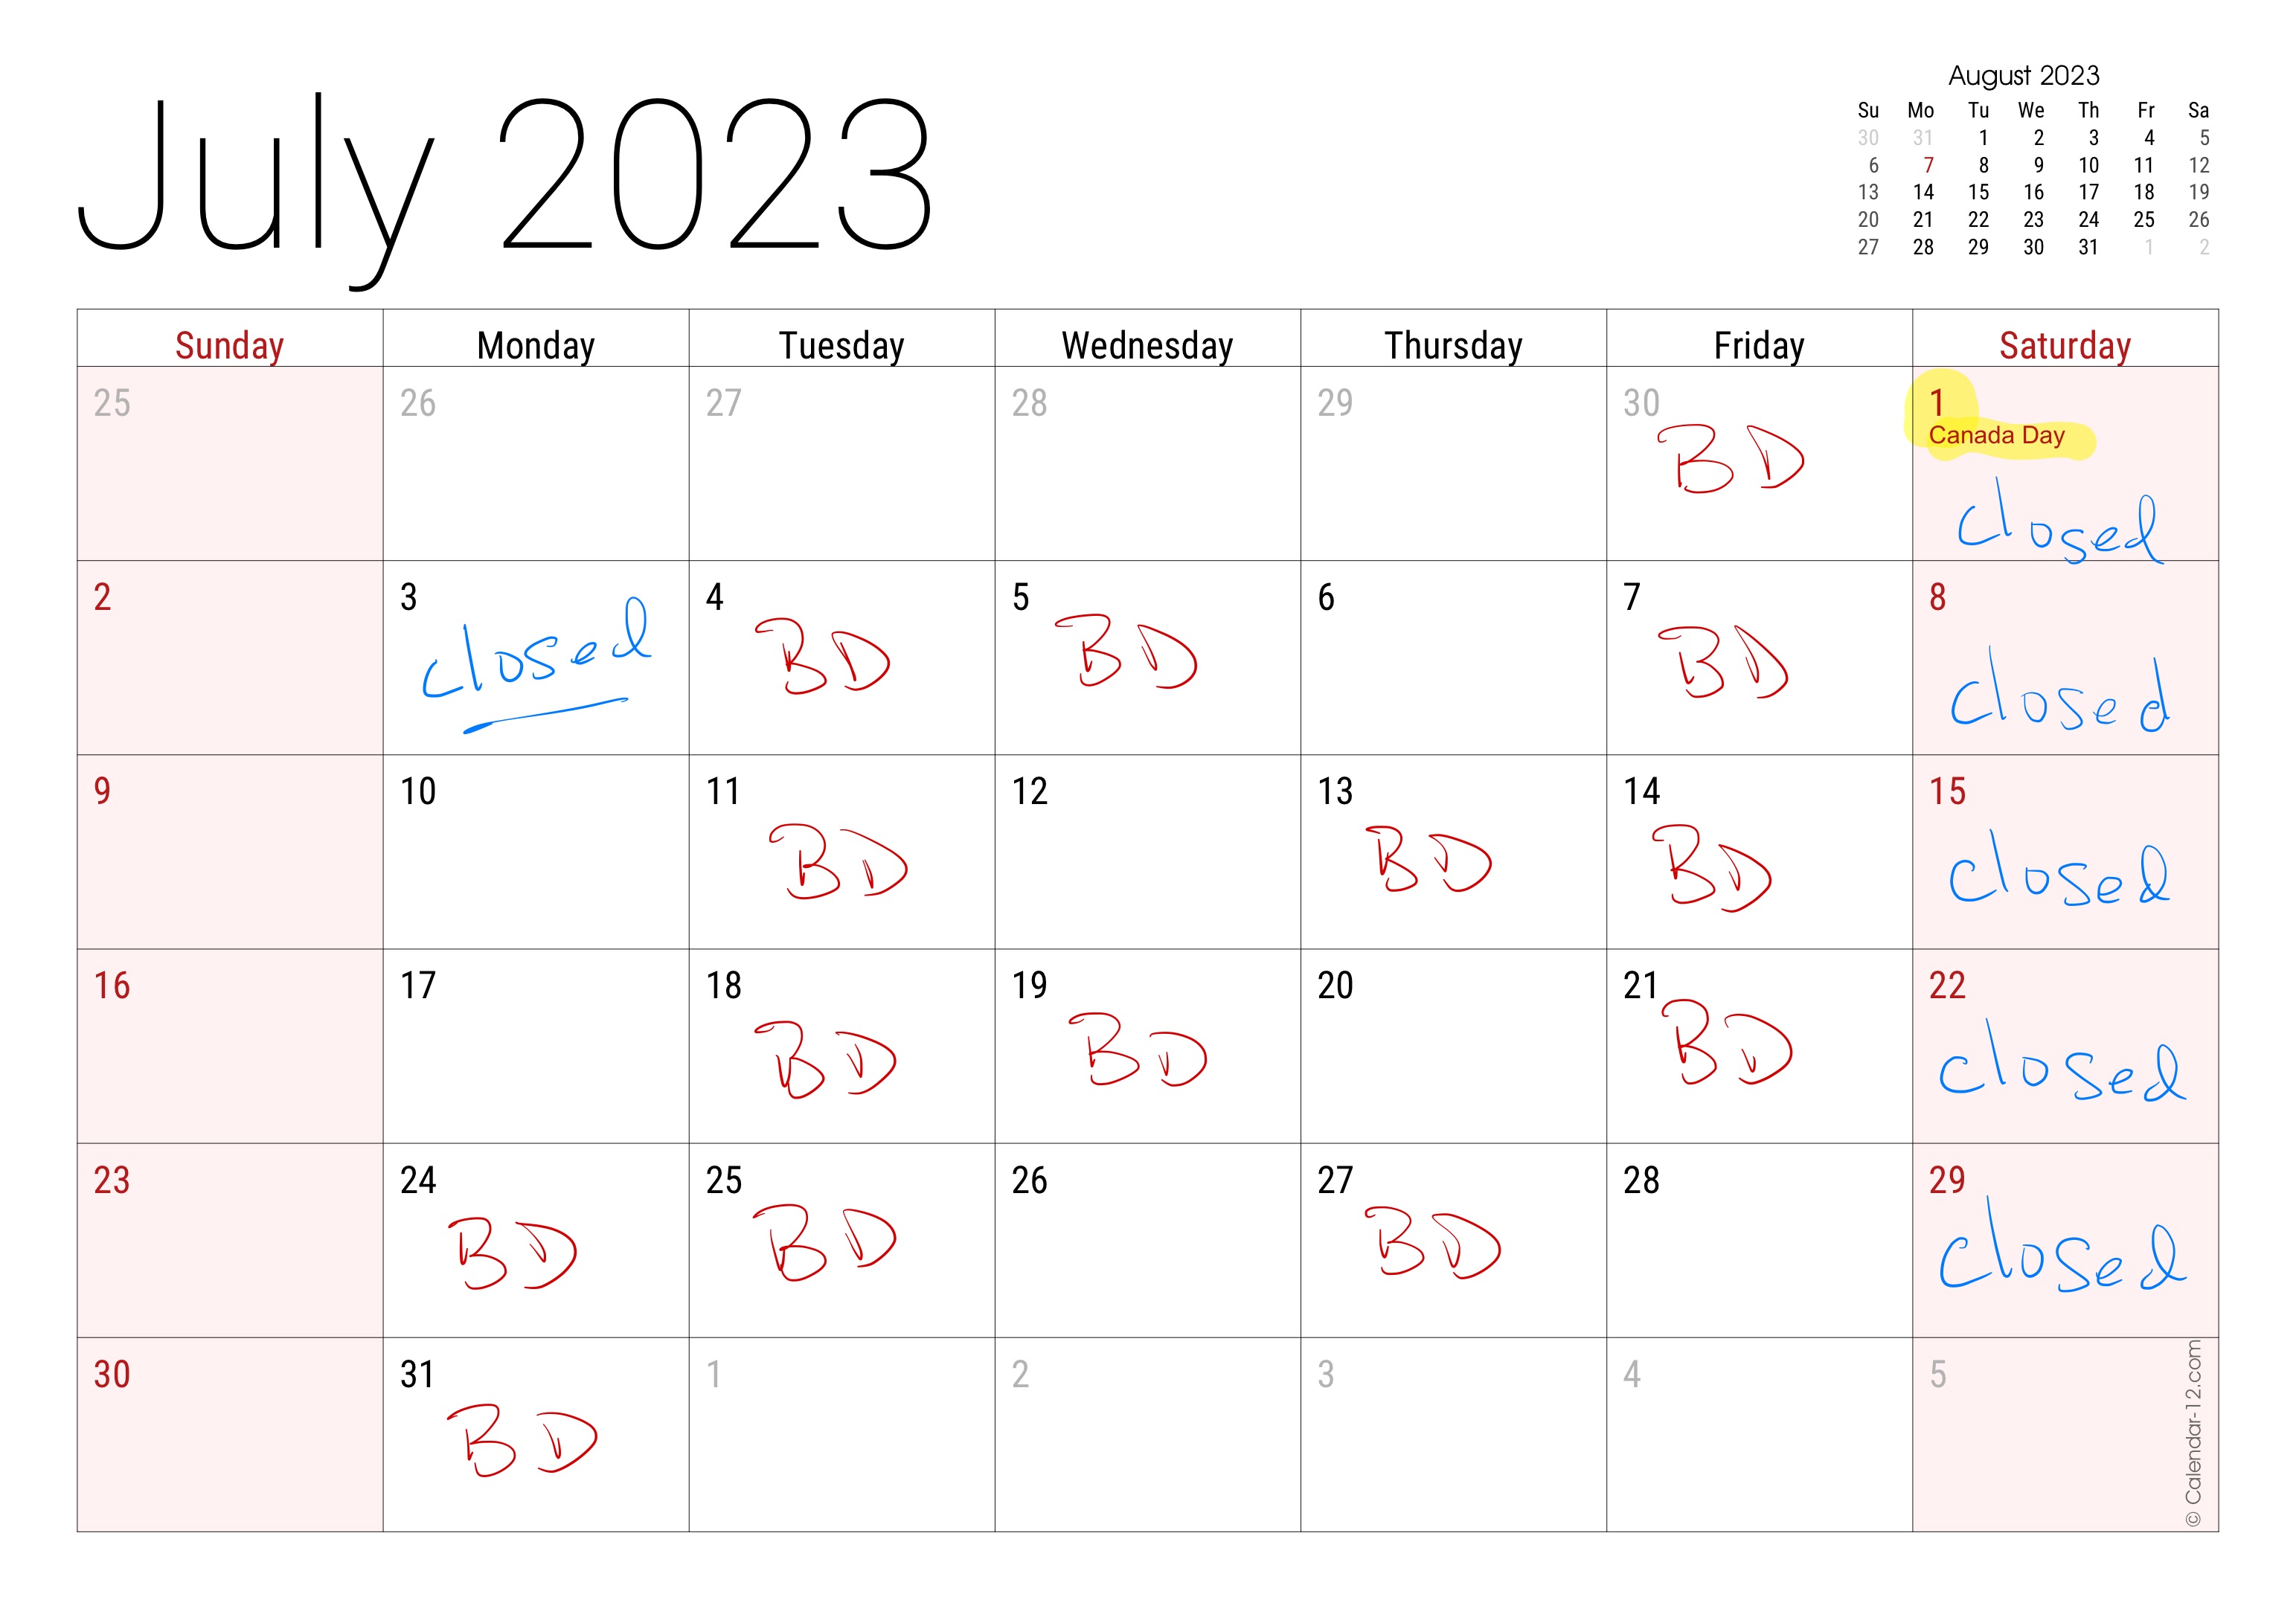 July 2023
August 2023
Su Mo Tu We Th Fr Sa
30 31 1 2 3 4 5
6 7 8 9 10 11 12
13 14 15 16 17 18 19
20 21 22 23 24 25 26
27 28 29 30 31 1 2
Sunday Monday Tuesday Wednesday Thursday Friday Saturday
25 26 27 28 29 30 1
Canada Day
BD closed
2 3 4 5 6 7 8
closed BD BD BD closed
9 10 11 12 13 14 15
BD BD BD closed
16 17 18 19 20 21 22
BD BD BD closed
23 24 25 26 27 28 29
BD BD BD closed
30 31 1 2 3 4 5
BD
© Calendar-12.com